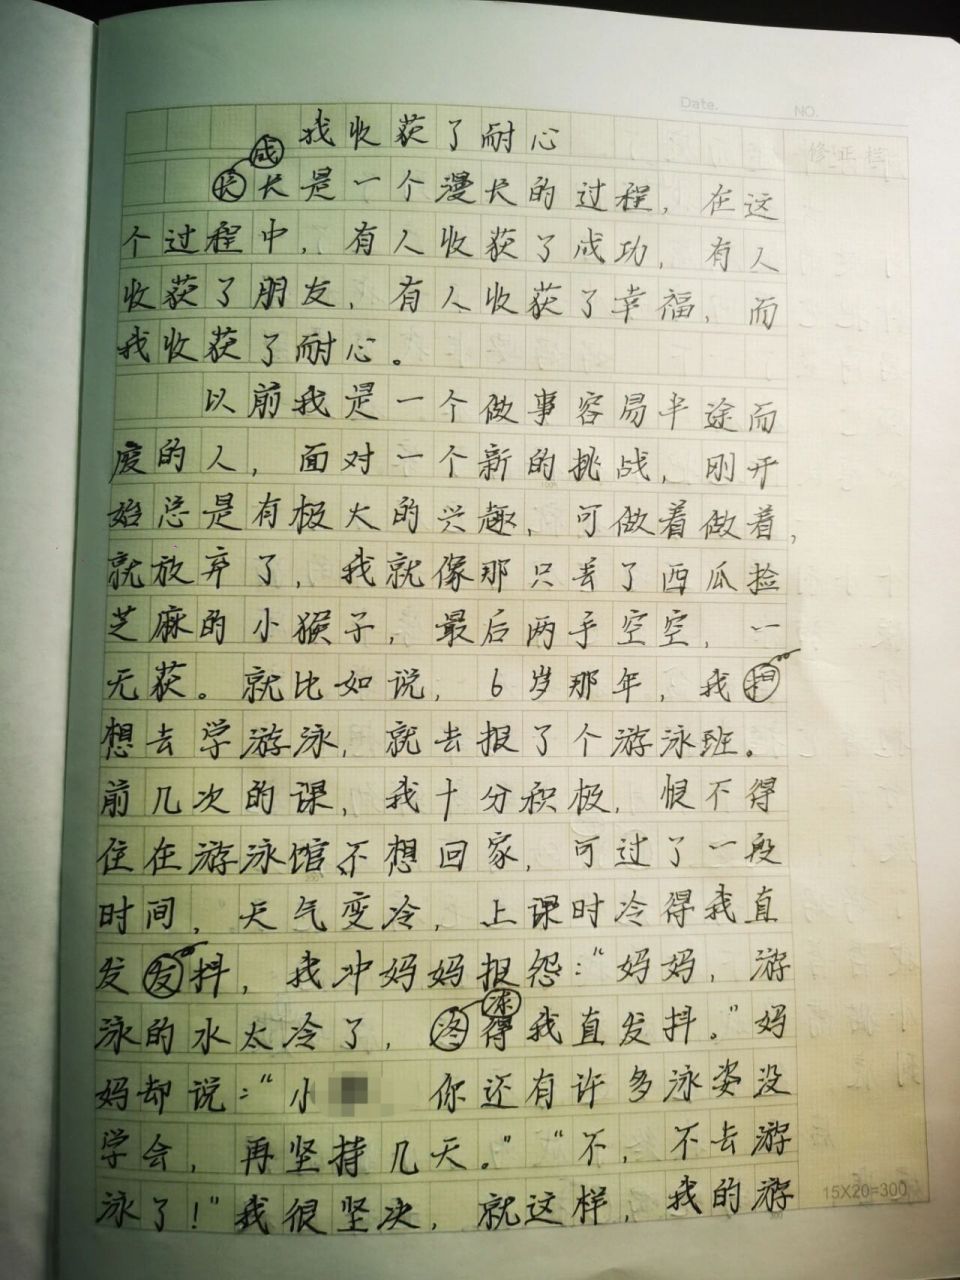 Date.
NO.
修正栏
我收获了耐心
成长是一个漫长的过程，在这
个过程中，有人收获了成功，有人
收获了朋友，有人收获了幸福，而
我收获了耐心。
以前我是一个做事容易半途而
废的人，面对一个新的挑战，刚开
始总是有极大的兴趣，可做着做着，
就放弃了，我就像那只丢了西瓜捡
芝麻的小猴子，最后两手空空，一
无获。就比如说，6岁那年，我
想去学游泳，就去报了个游泳班。
前几次的课，我十分积极，恨不得
住在游泳馆、不想回家，可过了一段
时间，天气变冷，上课时冷得我直
发抖，我冲妈妈报怨："妈妈，游
泳的水太冷了，冻得我直发抖。"妈
妈却说："小 你还有许多泳姿没
学会，再坚持几天。""不，不去游
泳了！"我很坚决，就这样，我的游
15X20=300